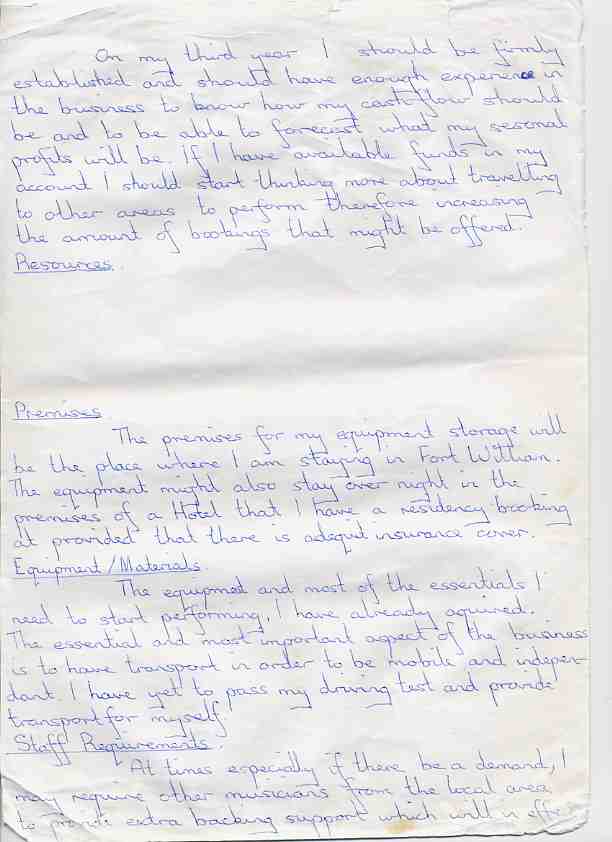 On my third year I should be firmly
established and should have enough experience in
the business to know how my cashflow should
be and to be able to forecast what my sesonal
profits will be. If I have available funds in my
account I should start thinking more about travelling
to other areas to perform therefore increasing
the amount of bookings that might be offered.
Resources.
Premises
The premises for my equipment storage will
be the place where I am staying in Fort William.
The equipment might also stay over night in the
premises of a Hotel that I have a residency booking
at provided that there is adequt insurance cover.
Equipment/Materials.
The equipmet and most of the essentials I
need to start performing, I have already aquired.
The essential and most important aspect of the business
is to have transport in order to be mobile and indepen-
dant. I have yet to pass my driving test and provide
transport for myself
Staff Requirements.
At times especially if there be a demand, I
may require other musicians from the local area
to provide extra backing support which will in effec